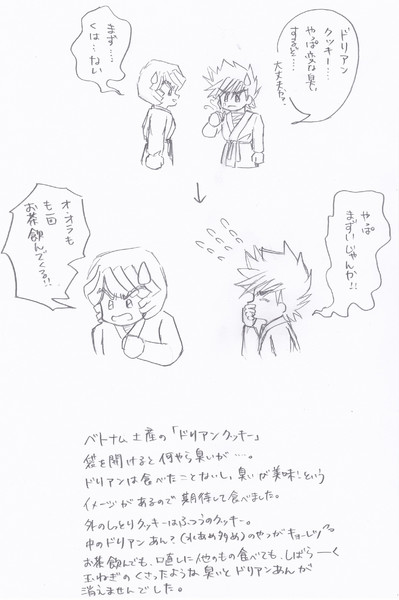 ドリアン
クッキー…
やっぱ変な臭い
するぞ…
大丈夫か?
まず…
くは…ない
やっぱ
まずいじゃんか!!
オ、オラも
も一回
お茶飲んでくる!!
ベトナム土産の「ドリアンクッキー」
袋を開けると何やら臭いが…。
ドリアンは食べたことないし、臭いが美味い という
イメージがあるので期待して食べました。
外のしっとりクッキーはふつうのクッキー。
中のドリアンあん?(水あめ多め)のやつがキョーレツ
お茶飲んでも、口直しに他のもの食べても、しばらーく
玉ねぎのくさったような臭いとドリアンあんが
消えませんでした。